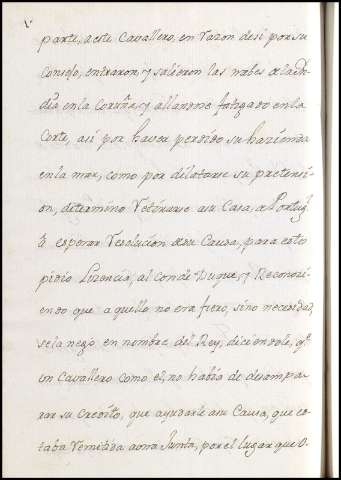 parte, a este Cavallero, en razon desi por su
Consejo, entraron, y salieron las nabes de la Yn
dia en la Coruña, y allandose fatigado en la
Corte, asi por haver perdido su hazienda
en la mar, como por dilatarse su pretensi-
on, determino retirarse a su Casa, de Portugl
á esperar resolucion de su Causa, para esto
pidio Lizencia, al Conde Duque, y Reconozi-
endo que aquello no era fiero, sino necesidad,
se la nego en nombre del Rey, diciendole, qe
un Cavallero como el, no habia de desampa-
rar su Credito, que ayudarle a su Causa, que es-
taba remitida a una Junta, por el lugar que o-